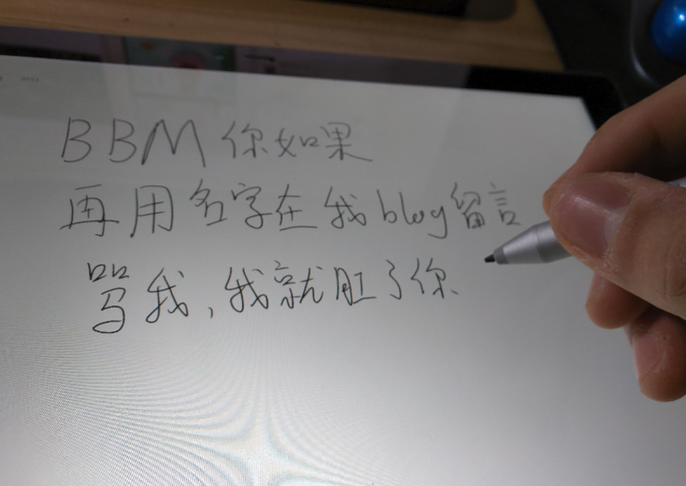 BBM你如果
再用名字在我blog留言
骂我,我就肛了你